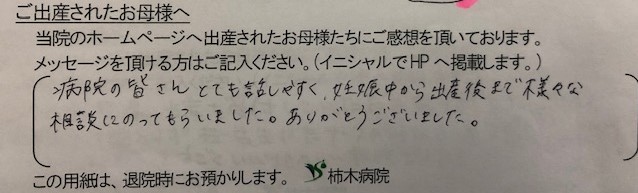 ご出産されたお母様へ
当院のホームページへ出産されたお母様たちにご感想を頂いております。
メッセージを頂ける方はご記入ください。(イニシャルでHPへ掲載します。)
病院の皆さんとても話しやすく、妊娠中から出産後まで様々な
相談にのってもらいました。ありがとうございました。
この用紙は、退院時にお預かりします。 柿木病院